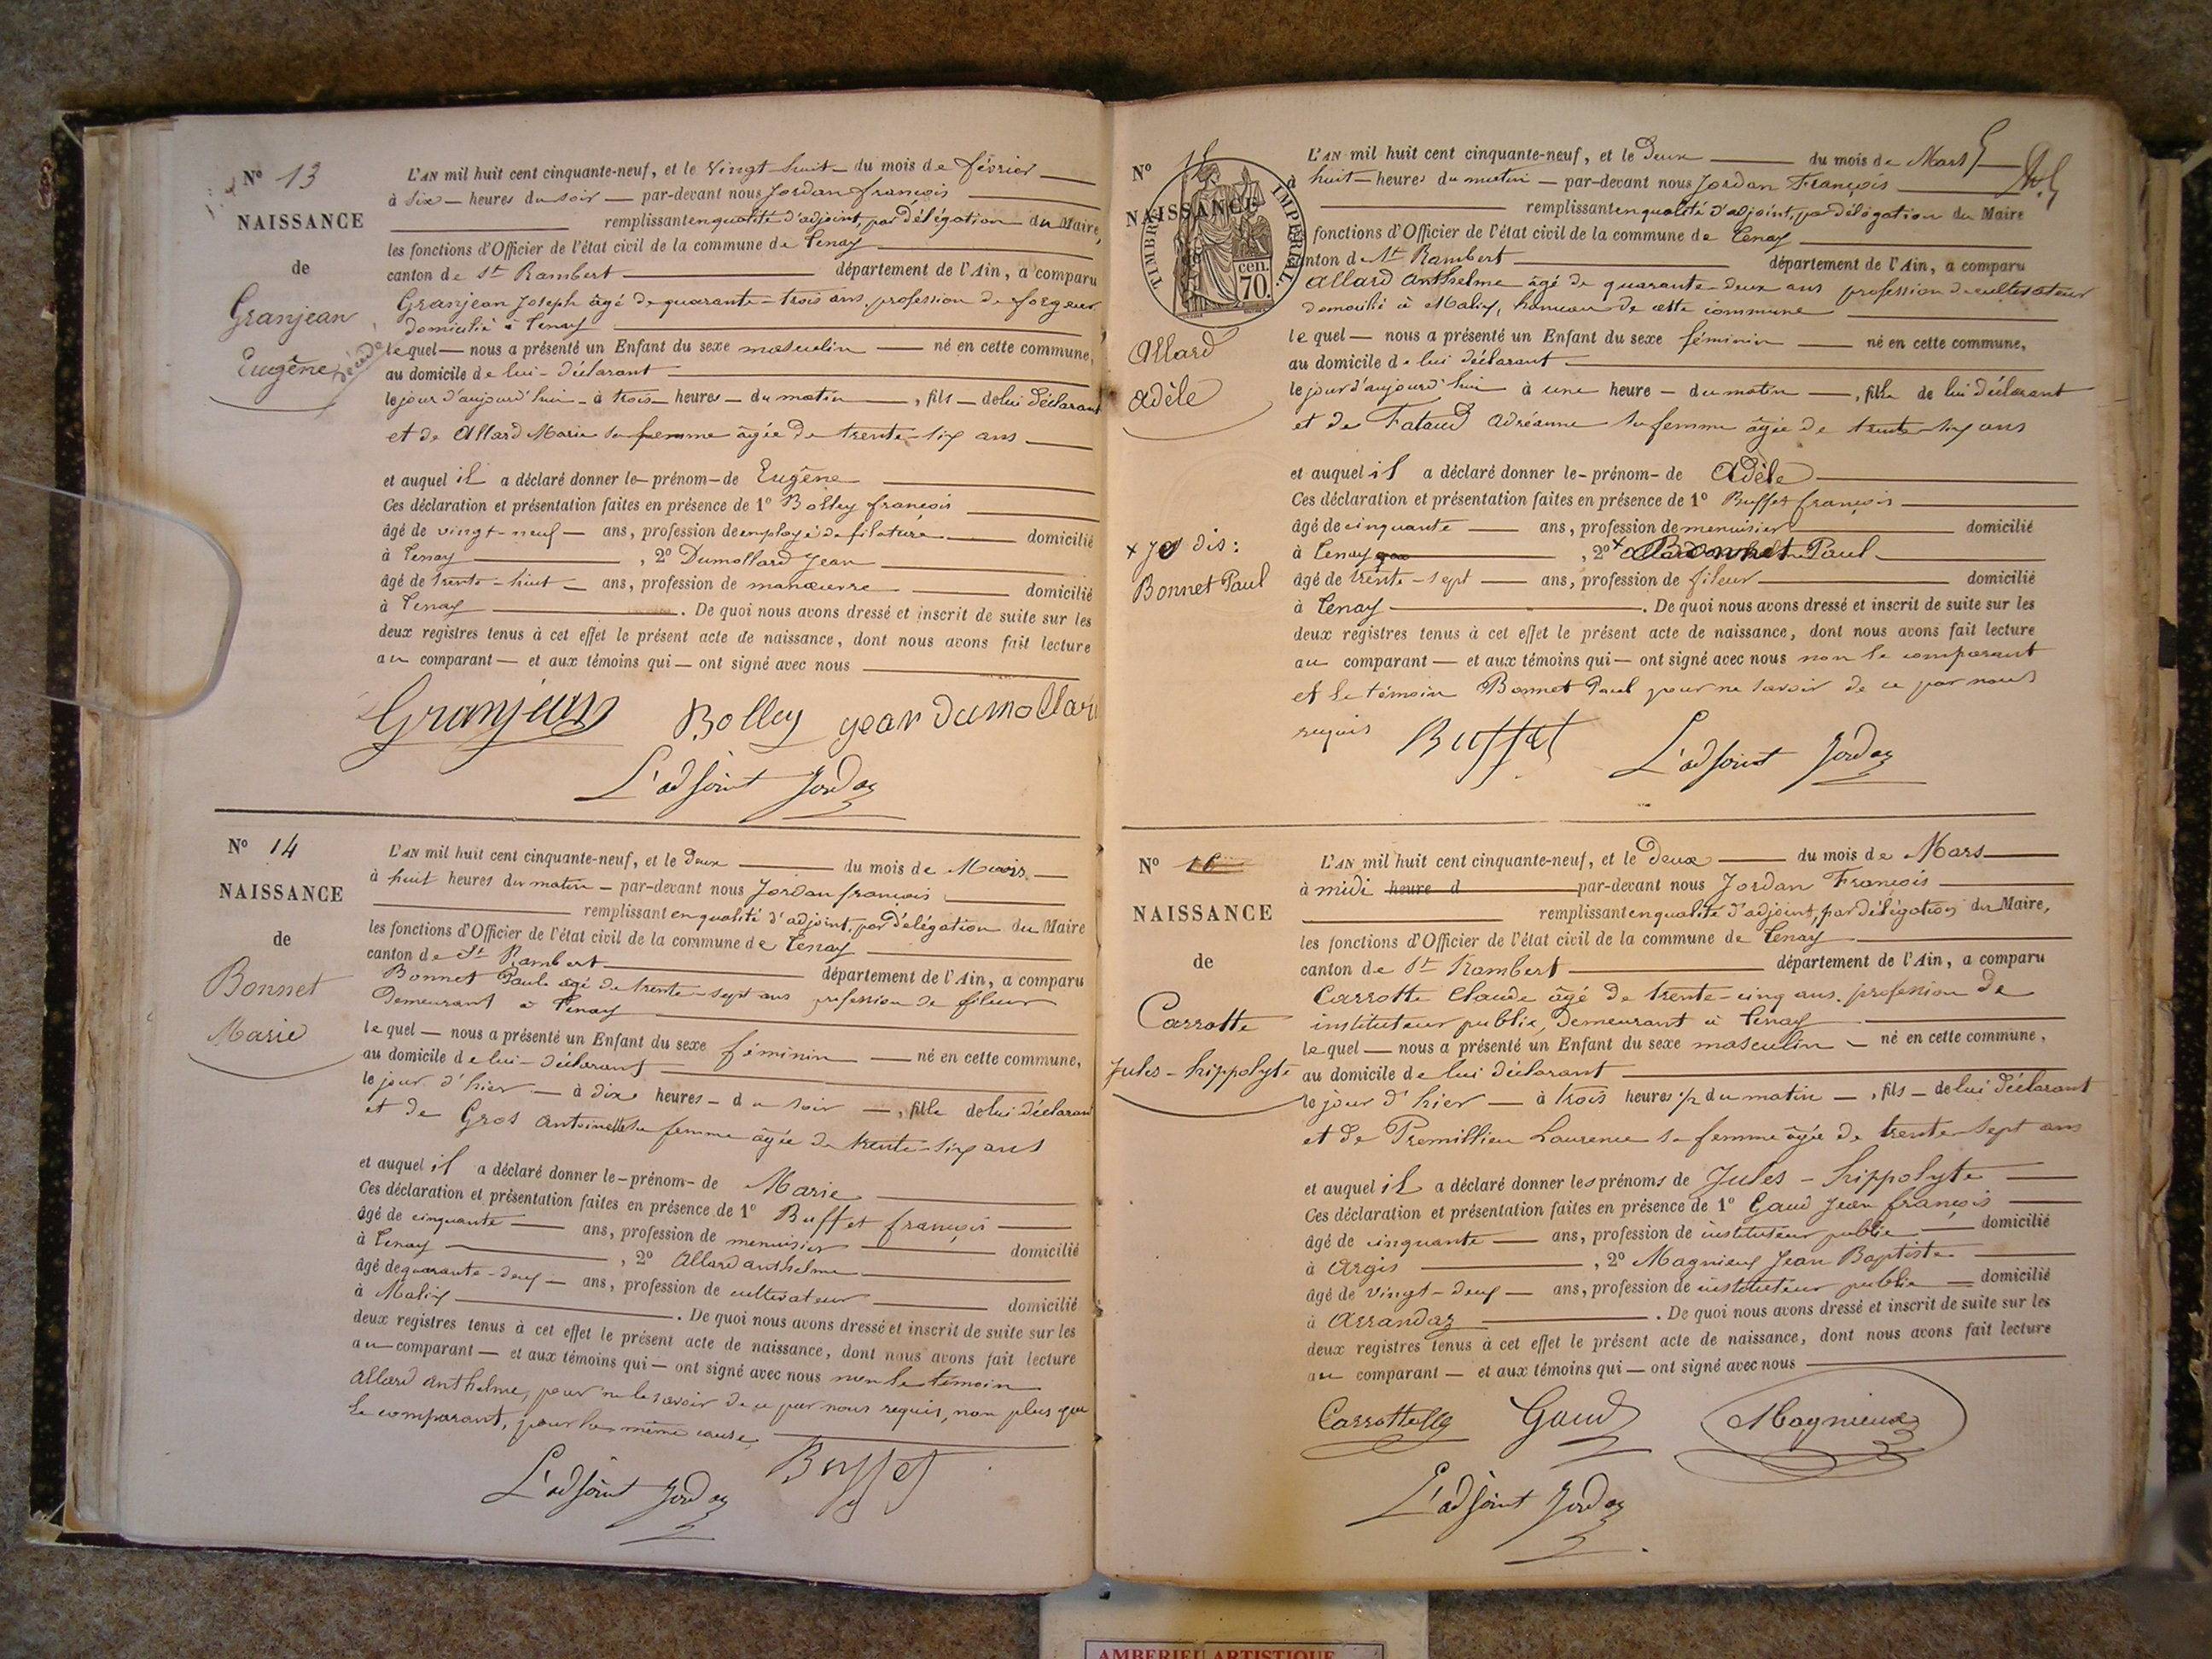 N° 13
NAISSANCE
de
Granjean
Eugène
décédé
L'AN mil huit cent cinquante-neuf, et le Vingt-huit du mois de février
à six heures du soir par-devant nous Jordan françois
remplissant en qualité d'adjoint, par délégation du Maire,
les fonctions d'Officier de l'état civil de la commune de Tenay
canton de St Rambert département de l'Ain, a comparu
Granjean Joseph âgé de quarante-trois ans, profession de forgeur
domicilié à Tenay
lequel nous a présenté un Enfant du sexe masculin né en cette commune,
au domicile de lui-déclarant
le jour d'aujourd'hui à trois heures du matin, fils de lui déclarant
et de Allard Marie sa femme âgée de trente-six ans
et auquel il a déclaré donner le prénom de Eugène
Ces déclaration et présentation faites en présence de 1° Bolley françois
âgé de vingt-neuf ans, profession de employé de filature domicilié
à Tenay, 2° Dumollard Jean
âgé de trente-huit ans, profession de manœuvre domicilié
à Tenay. De quoi nous avons dressé et inscrit de suite sur les
deux registres tenus à cet effet le présent acte de naissance, dont nous avons fait lecture
au comparant et aux témoins qui ont signé avec nous
Granjean Bolley jean dumollard
L'adjoint Jordan
N° 14
NAISSANCE
de
Bonnet
Marie
L'AN mil huit cent cinquante-neuf, et le deux du mois de Mars
à huit heures du matin par-devant nous Jordan françois
remplissant en qualité d'adjoint, par délégation du Maire
les fonctions d'Officier de l'état civil de la commune de Tenay
canton de St Rambert département de l'Ain, a comparu
Bonnet Paul âgé de trente-sept ans profession de fileur
demeurant à Tenay
lequel nous a présenté un Enfant du sexe féminin né en cette commune,
au domicile de lui-déclarant
le jour d'hier à dix heures du soir, fille de lui déclarant
et de Gros Antoinette sa femme âgée de trente-six ans
et auquel il a déclaré donner le prénom de Marie
Ces déclaration et présentation faites en présence de 1° Buffet françois
âgé de cinquante ans, profession de menuisier domicilié
à Tenay, 2° Allard anthelme
âgé de quarante-deux ans, profession de cultivateur domicilié
à Malix. De quoi nous avons dressé et inscrit de suite sur les
deux registres tenus à cet effet le présent acte de naissance, dont nous avons fait lecture
au comparant et aux témoins qui ont signé avec nous non le témoin
Allard anthelme, pour ne le savoir de ce par nous requis, non plus que
le comparant, pour la même cause,
L'adjoint Jordan Buffet
N°
NAISSANCE
TIMBRE IMPÉRIAL.
cen.
70.
Allard
Adèle
+ dis:
Bonnet Paul
L'AN mil huit cent cinquante-neuf, et le Deux du mois de Mars
à huit heures du matin par-devant nous Jordan François
remplissant en qualité d'adjoint, par délégation du Maire
fonctions d'Officier de l'état civil de la commune de Tenay
canton de St Rambert département de l'Ain, a comparu
Allard Anthelme âgé de quarante-deux ans profession de cultivateur
domicilié à Malix, hameau de cette commune
lequel nous a présenté un Enfant du sexe féminin né en cette commune,
au domicile de lui déclarant
le jour d'aujourd'hui à une heure du matin, fille de lui déclarant
et de Fataud Adréanne sa femme âgée de trente-six ans
et auquel il a déclaré donner le prénom de Adèle
Ces déclaration et présentation faites en présence de 1° Buffet françois
âgé de cinquante ans, profession de menuisier domicilié
à Tenay, 2° + Bonnet Paul
âgé de trente-sept ans, profession de fileur domicilié
à Tenay. De quoi nous avons dressé et inscrit de suite sur les
deux registres tenus à cet effet le présent acte de naissance, dont nous avons fait lecture
au comparant et aux témoins qui ont signé avec nous non le comparant
et le témoin Bonnet Paul pour ne savoir de ce par nous
requis Buffet L'adjoint Jordan
N° 16
NAISSANCE
de
Carrotte
Jules-hippolyte
L'AN mil huit cent cinquante-neuf, et le Deux du mois de Mars
à midi heure d par-devant nous Jordan François
remplissant en qualité d'adjoint, par délégation du Maire,
les fonctions d'Officier de l'état civil de la commune de Tenay
canton de St Rambert département de l'Ain, a comparu
Carrotte Claude âgé de trente-cinq ans, profession de
instituteur public, demeurant à Tenay
lequel nous a présenté un Enfant du sexe masculin né en cette commune,
au domicile de lui déclarant
le jour d'hier à trois heures ½ du matin, fils de lui déclarant
et de Premillieu Laurence sa femme âgée de trente-sept ans
et auquel il a déclaré donner les prénoms de Jules-hippolyte
Ces déclaration et présentation faites en présence de 1° Gaud Jean françois
âgé de cinquante ans, profession de instituteur public domicilié
à Argis, 2° Magnieux Jean Baptiste
âgé de vingt-deux ans, profession de instituteur public domicilié
à Arandaz. De quoi nous avons dressé et inscrit de suite sur les
deux registres tenus à cet effet le présent acte de naissance, dont nous avons fait lecture
au comparant et aux témoins qui ont signé avec nous
Carrotte Gaud Magnieux
L'adjoint Jordan
AMBERIEU ARTISTIQUE